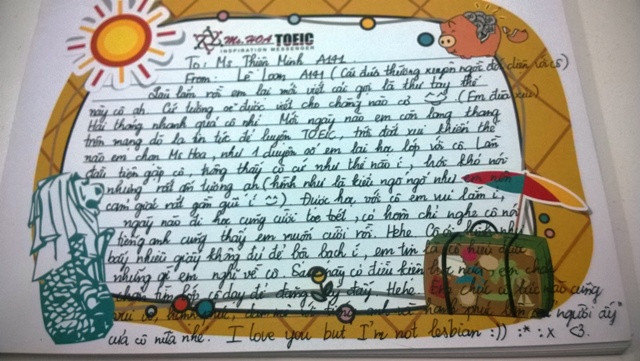 Ms. HOA TOEIC
INSPIRATION MESSENGER
To: Ms Thiên Minh A141
From: Lê Loan A141 (Cái đứa thường xuyên ngơ đó cô)
Lâu lắm rồi em lại mới viết cái gọi là thư tay thế
này cô ah. Cứ tưởng sẽ được viết cho chàng nào cơ (Em đùa xíu)
Hai tháng nhanh quá cô nhỉ. Mới ngày nào em còn lang thang
trên mạng dò la tin tức để luyện TOEIC, trời đất xui khiến thế
nào em chọn Ms Hoa, như 1 duyên số em lại học lớp với cô. Lần
đầu tiên gặp cô, trông thấy cô cứ như thế nào í, khó nói
nhưng rất ấn tượng ah (hình như là kiểu ngơ ngơ như em nên
cảm giác rất gần gũi í) Được học với cô em vui lắm í,
ngày nào đi học cũng cười toe toét, có hôm chỉ nghe cô nói
tiếng anh cũng thấy em muốn cười rồi. Hehe.
bấy nhiêu giấy không đủ để bộc bạch í, em tin là cô hiểu được
những gì em nghĩ về cô. Sau này có điều kiện học nữa, em
cô dạy để đăng ký đấy Hehe. Em chúc cô lúc nào cũng
vui vẻ, người ấy"
của cô nữa nhé. I love you but I'm not lesbian :)) :* :x <3.